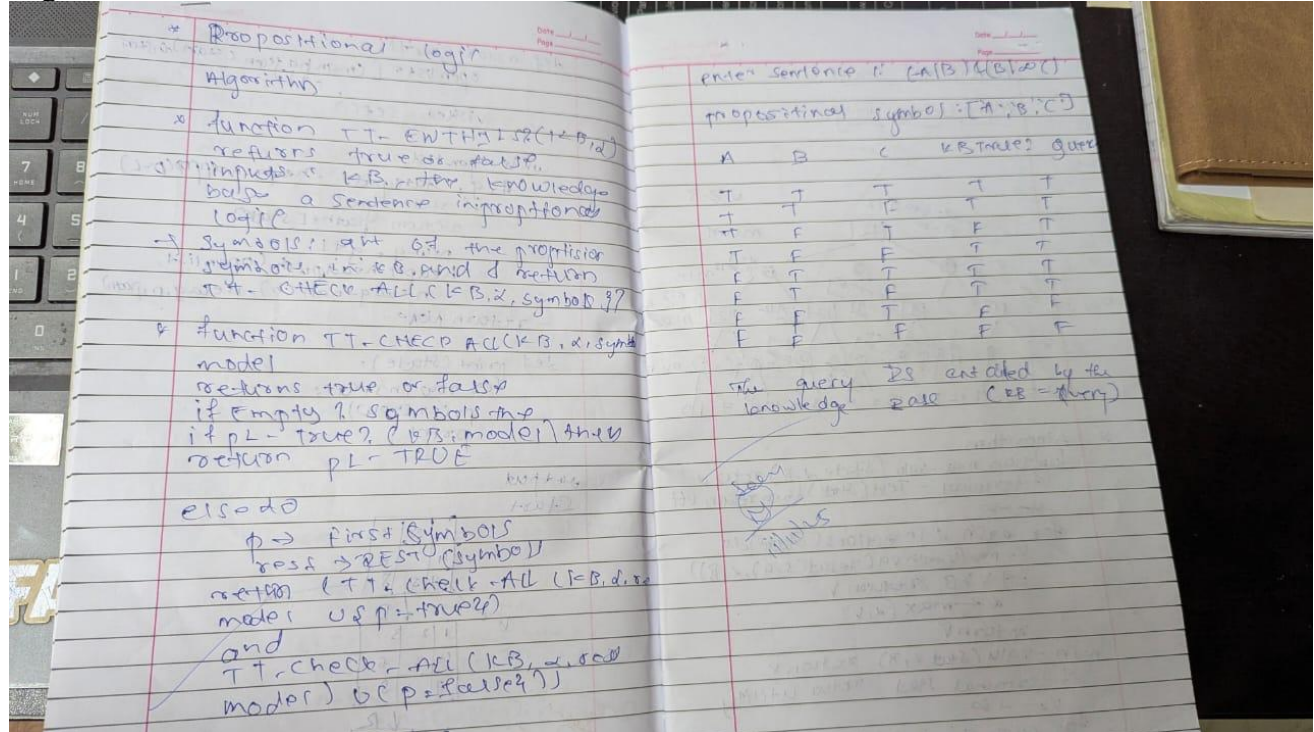 * Propositional - logic
Algorithm
* function TT- ENTHILS?(KB,α)
returns true or false.
inputs: KB, the knowledge
base a sentence in proptional
logic
→ symbols: art of the proptision
symbols in KB, and α return
TT- CHECK ALL (KB, α, symbols, {})
* function TT- CHECK ALL(KB, α, symb
model
returns true or false
if Empty ? symbols the
if pL- true? (KB, model) then
return pL- TRUE
else do
p → first symbols
rest → REST (symbol)
return (TT- check-ALL (KB, α, re
model ∪ {p = true})
and
TT- check - ALL (KB, α, rest
model) ∪ (p = false}))
enter sentence 1: (A|B)&(B|~C)
propositinal symbol: [A, B, C]
A B C KB True? quer
T T T T T
T T F T T
T F T F T
T F F T T
F T T T T
F T F T T
F F T F F
F F F F F
The query IS entailed by the
knowledge Base (KB = Query)
Seen